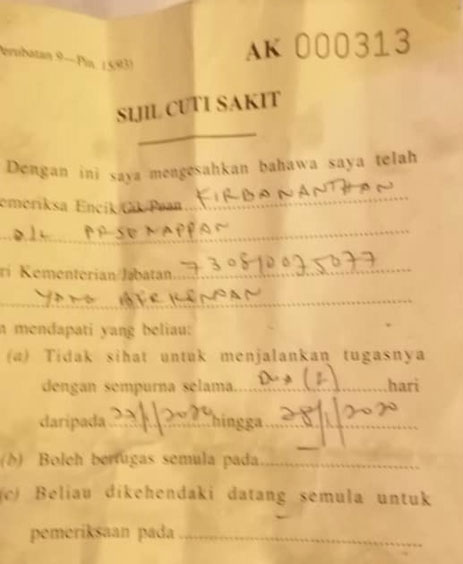 Perubatan 9—Pin. 15/93)
AK 000313
SIJIL CUTI SAKIT
Dengan ini saya mengesahkan bahawa saya telah
emeriksa Encik/Cik/Puan KIRBANANTHAN
a/l
ri Kementerian/Jabatan
YANG BERKENAAN
n mendapati yang beliau:
(a) Tidak sihat untuk menjalankan tugasnya
dengan sempurna selama Dua (2) hari
daripada hingga 28/1/2020
(b) Boleh bertugas semula pada
(c) Beliau dikehendaki datang semula untuk
pemeriksaan pada